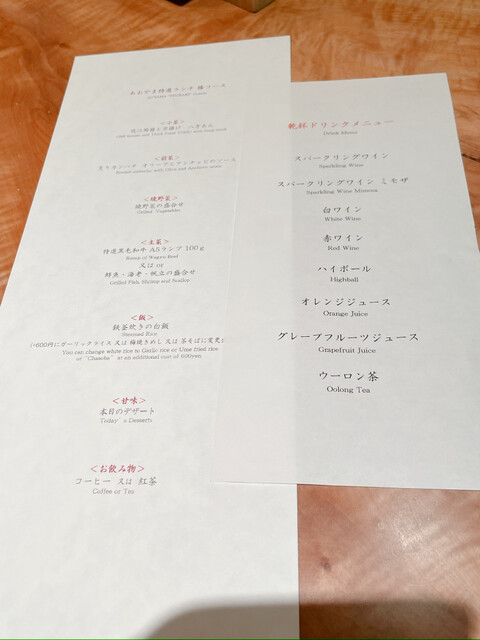 特選ランチ
コース
<小菜>
<前菜>
<焼野菜>
焼野菜の盛合せ
Grilled Vegetables
<主菜>
特選黒毛和牛 A5ランプ 100g
Rump of Wagyu Beef
又は or
鮮魚・海老・帆立の盛合せ
Grilled Fish, Shrimp and Scallop
<飯>
鉄釜炊きの白飯
Steamed Rice
(+600円にガーリックライス 又は 梅焼きめし 又は 茶そばに変更
You can change white rice to Garlic rice or Ume fried rice
or "Chasoba" at an additional cost of 600yen
<甘味>
本日のデザート
Today's Desserts
<お飲み物>
コーヒー 又は 紅茶
Coffee or Tea
乾杯ドリンクメニュー
Drink Menu
スパークリングワイン
Sparkling Wine
スパークリングワイン ミモザ
Sparkling Wine Mimosa
白ワイン
White Wine
赤ワイン
Red Wine
ハイボール
Highball
オレンジジュース
Orange Juice
グレープフルーツジュース
Grapefruit Juice
ウーロン茶
Oolong Tea